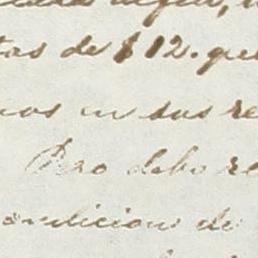 tas de $12. que
nos en sus re
Pero debo re
ondicion de